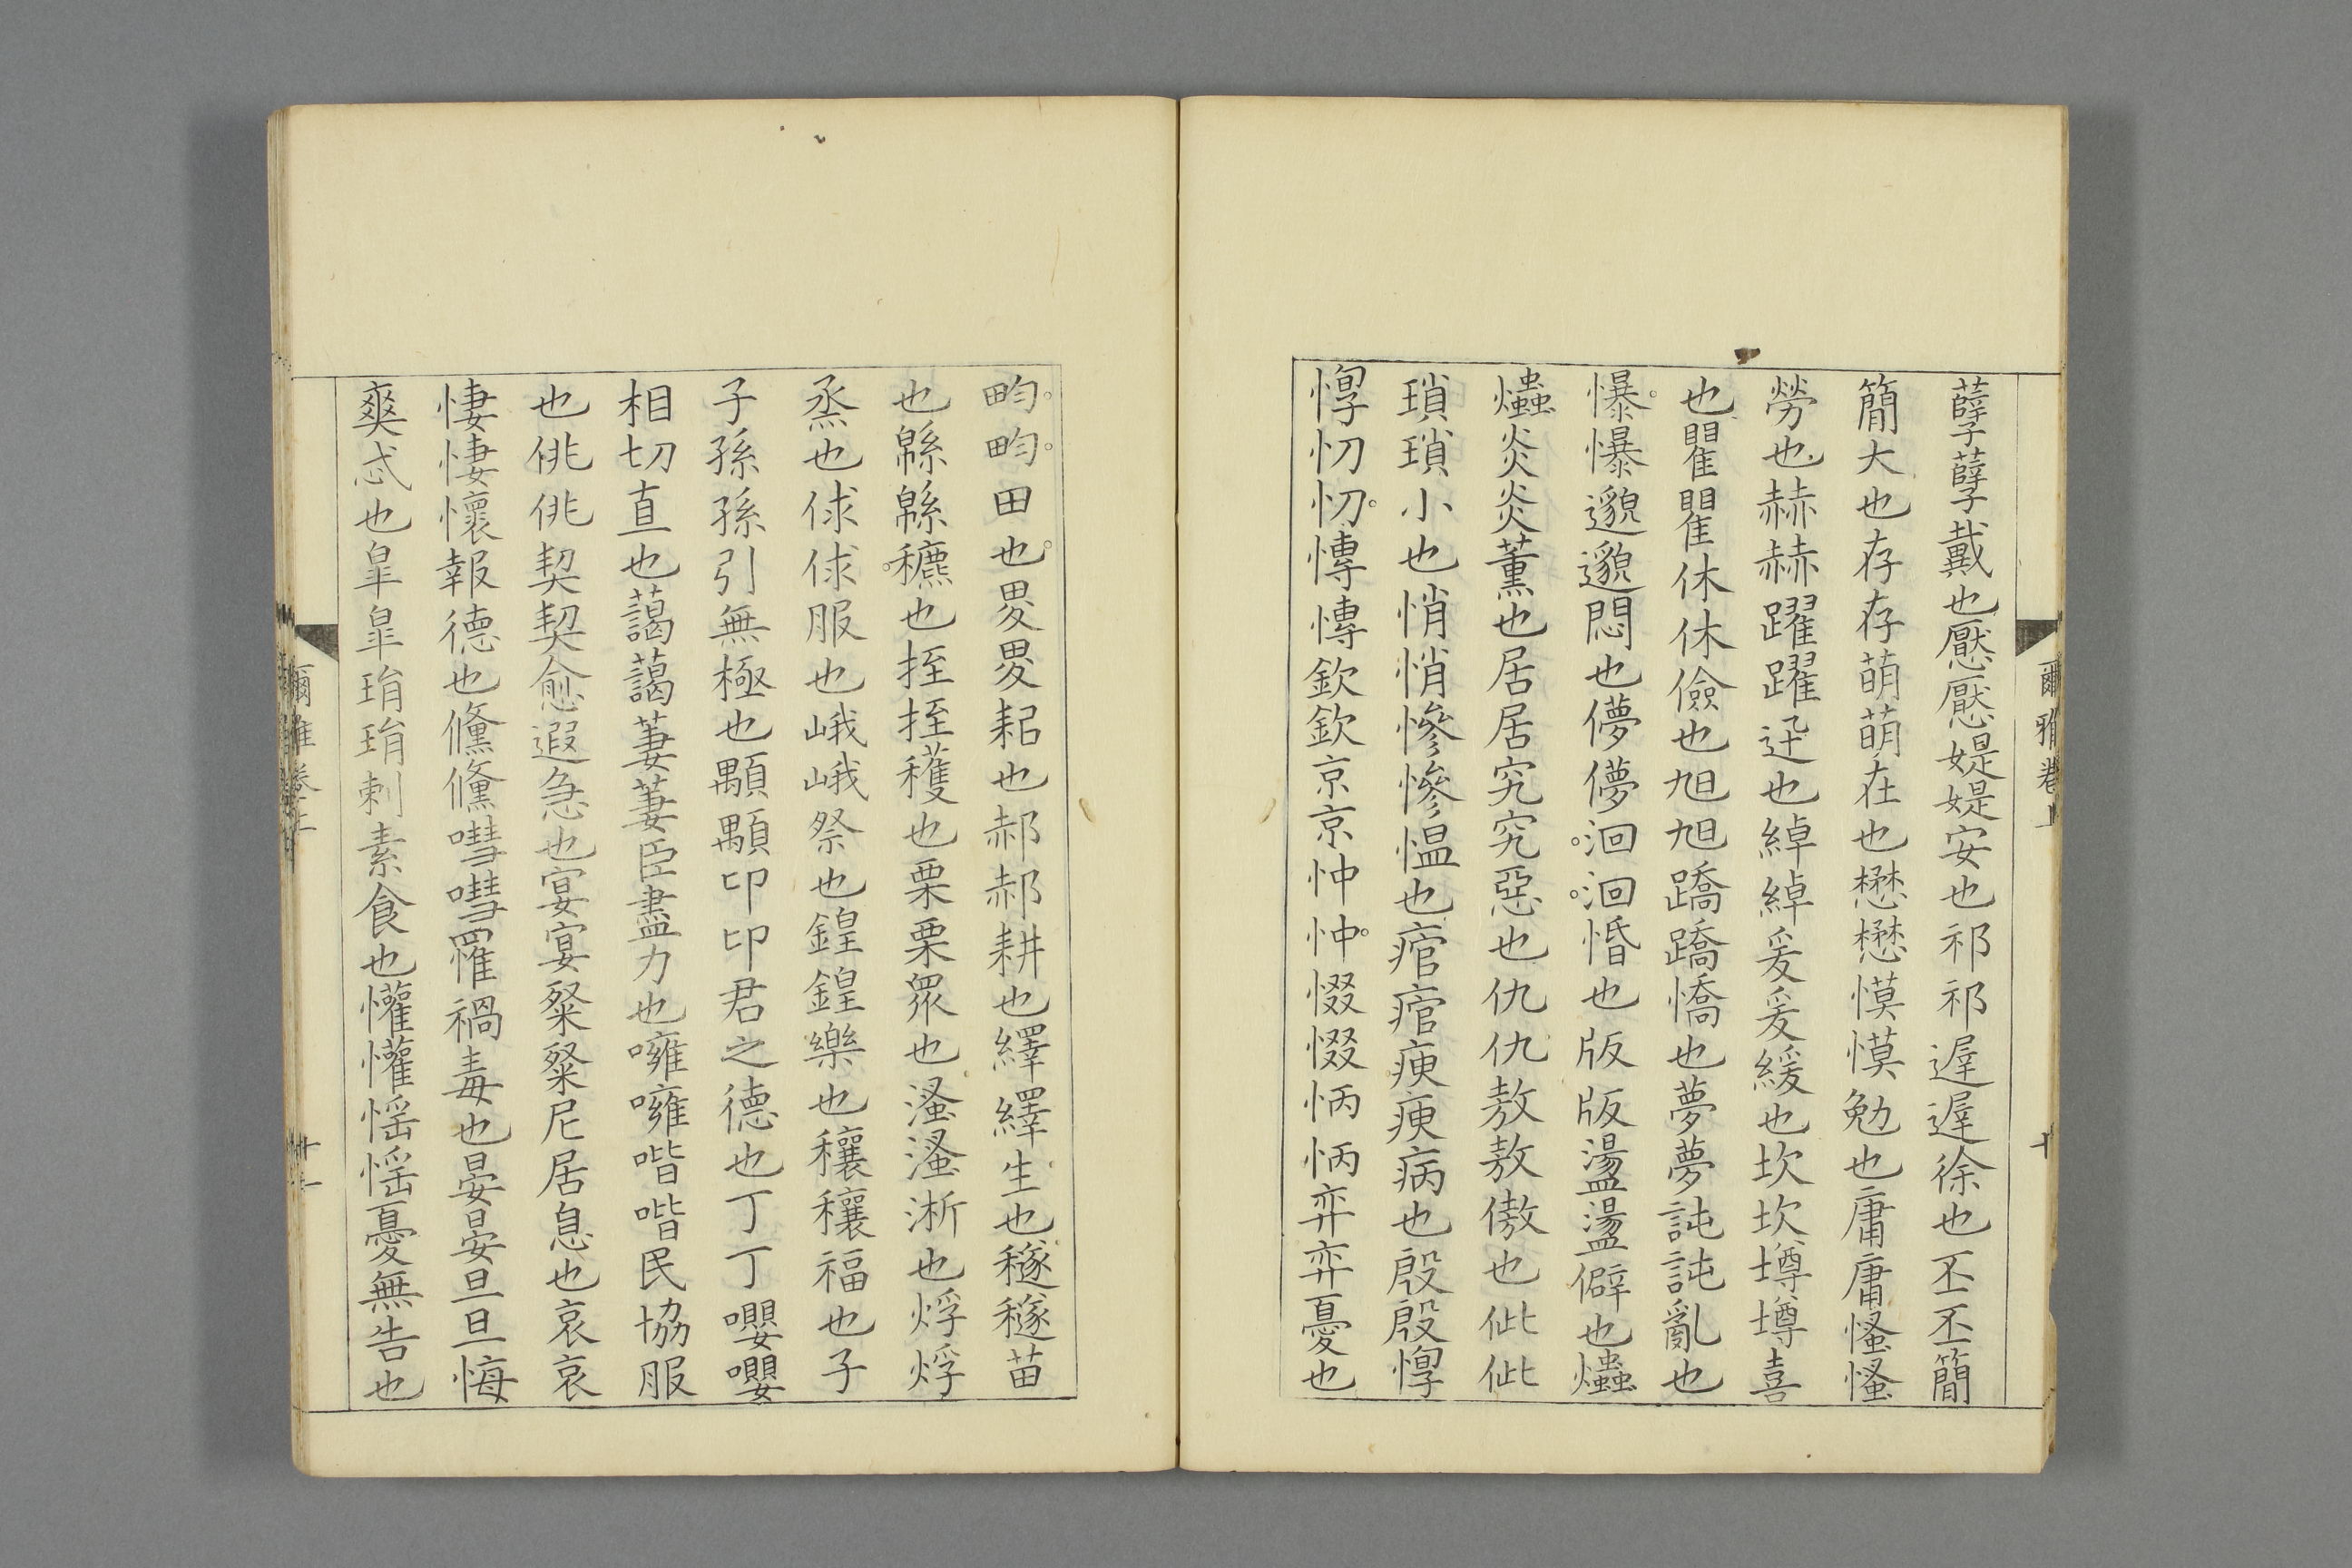 爾雅卷上
十
孽孽戴也懕懕媞媞安也祁祁遲遲徐也丕丕簡
簡大也存存萌萌在也懋懋慔慔勉也庸庸慅慅
勞也赫赫躍躍迅也綽綽爰爰緩也坎坎墫墫喜
也瞿瞿休休儉也旭旭蹻蹻憍也夢夢訰訰亂也
懪懪邈邈悶也儚儚洄洄惛也版版盪盪僻也爞
爞炎炎薰也居居究究惡也仇仇敖敖傲也佌佌
瑣瑣小也悄悄慘慘慍也痯痯瘐瘐病也殷殷惸
惸忉忉慱慱欽欽京京忡忡惙惙怲怲弈弈憂也
畇畇田也畟畟耜也郝郝耕也繹繹生也穟穟苗
也緜緜穮也挃挃穫也栗栗眾也溞溞淅也烰烰
烝也俅俅服也峨峨祭也鍠鍠樂也穰穰福也子
子孫孫引無極也顒顒卬卬君之德也丁丁嚶嚶
相切直也藹藹萋萋臣盡力也噰噰喈喈民協服
也佻佻契契愈遐急也宴宴粲粲尼居息也哀哀
悽悽懷報德也儵儵嘒嘒罹禍毒也晏晏旦旦悔
爽忒也皐皐琄琄刺素食也懽懽愮愮憂無告也
爾雅卷上
十一